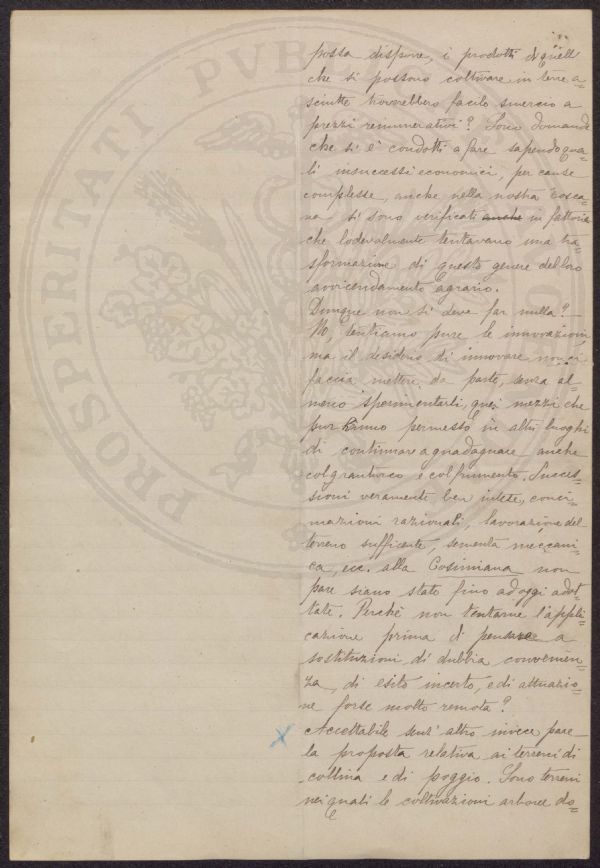 possa disporre, i prodotti di quelli
che si possono coltivare in terre a-
sciutte troverebbero facile smercio a
prezzi remunerativi? Sono domande
che si è condotti a fare sapendo qua-
li insuccessi economici, per cause
complesse, anche nella nostra Tosca-
na si sono verificati anche in fattorie
che lodevolmente tentavano una tra-
sformazione di questo genere del loro
avvicendamento agrario.
Dunque non si deve far nulla?
No, tentiamo pure le innovazioni
ma il desiderio di innovare non ci
faccia mettere da parte, senza al-
meno sperimentarli, quei mezzi che
pur hanno permesso in altri luoghi
di continuare a guadagnare anche
col granturco e col frumento. Succes-
sioni veramente ben intese, conci-
mazioni razionali, lavorazione del
terreno sufficente, sementa meccani-
ca, ecc. alla Cosimiana non
pare siano state fino ad oggi adot-
tate. Perchè non tentarne l'appli-
cazione prima di pensare a
sostituzioni di dubbia convenien-
za, di esito incerto, e di attuazio-
ne forse molto remota?
Accettabile senz'altro invece pare
la proposta relativa ai terreni di
collina e di poggio. Sono terreni
nei quali le coltivazioni arboree do-
PROSPERITATI PVB